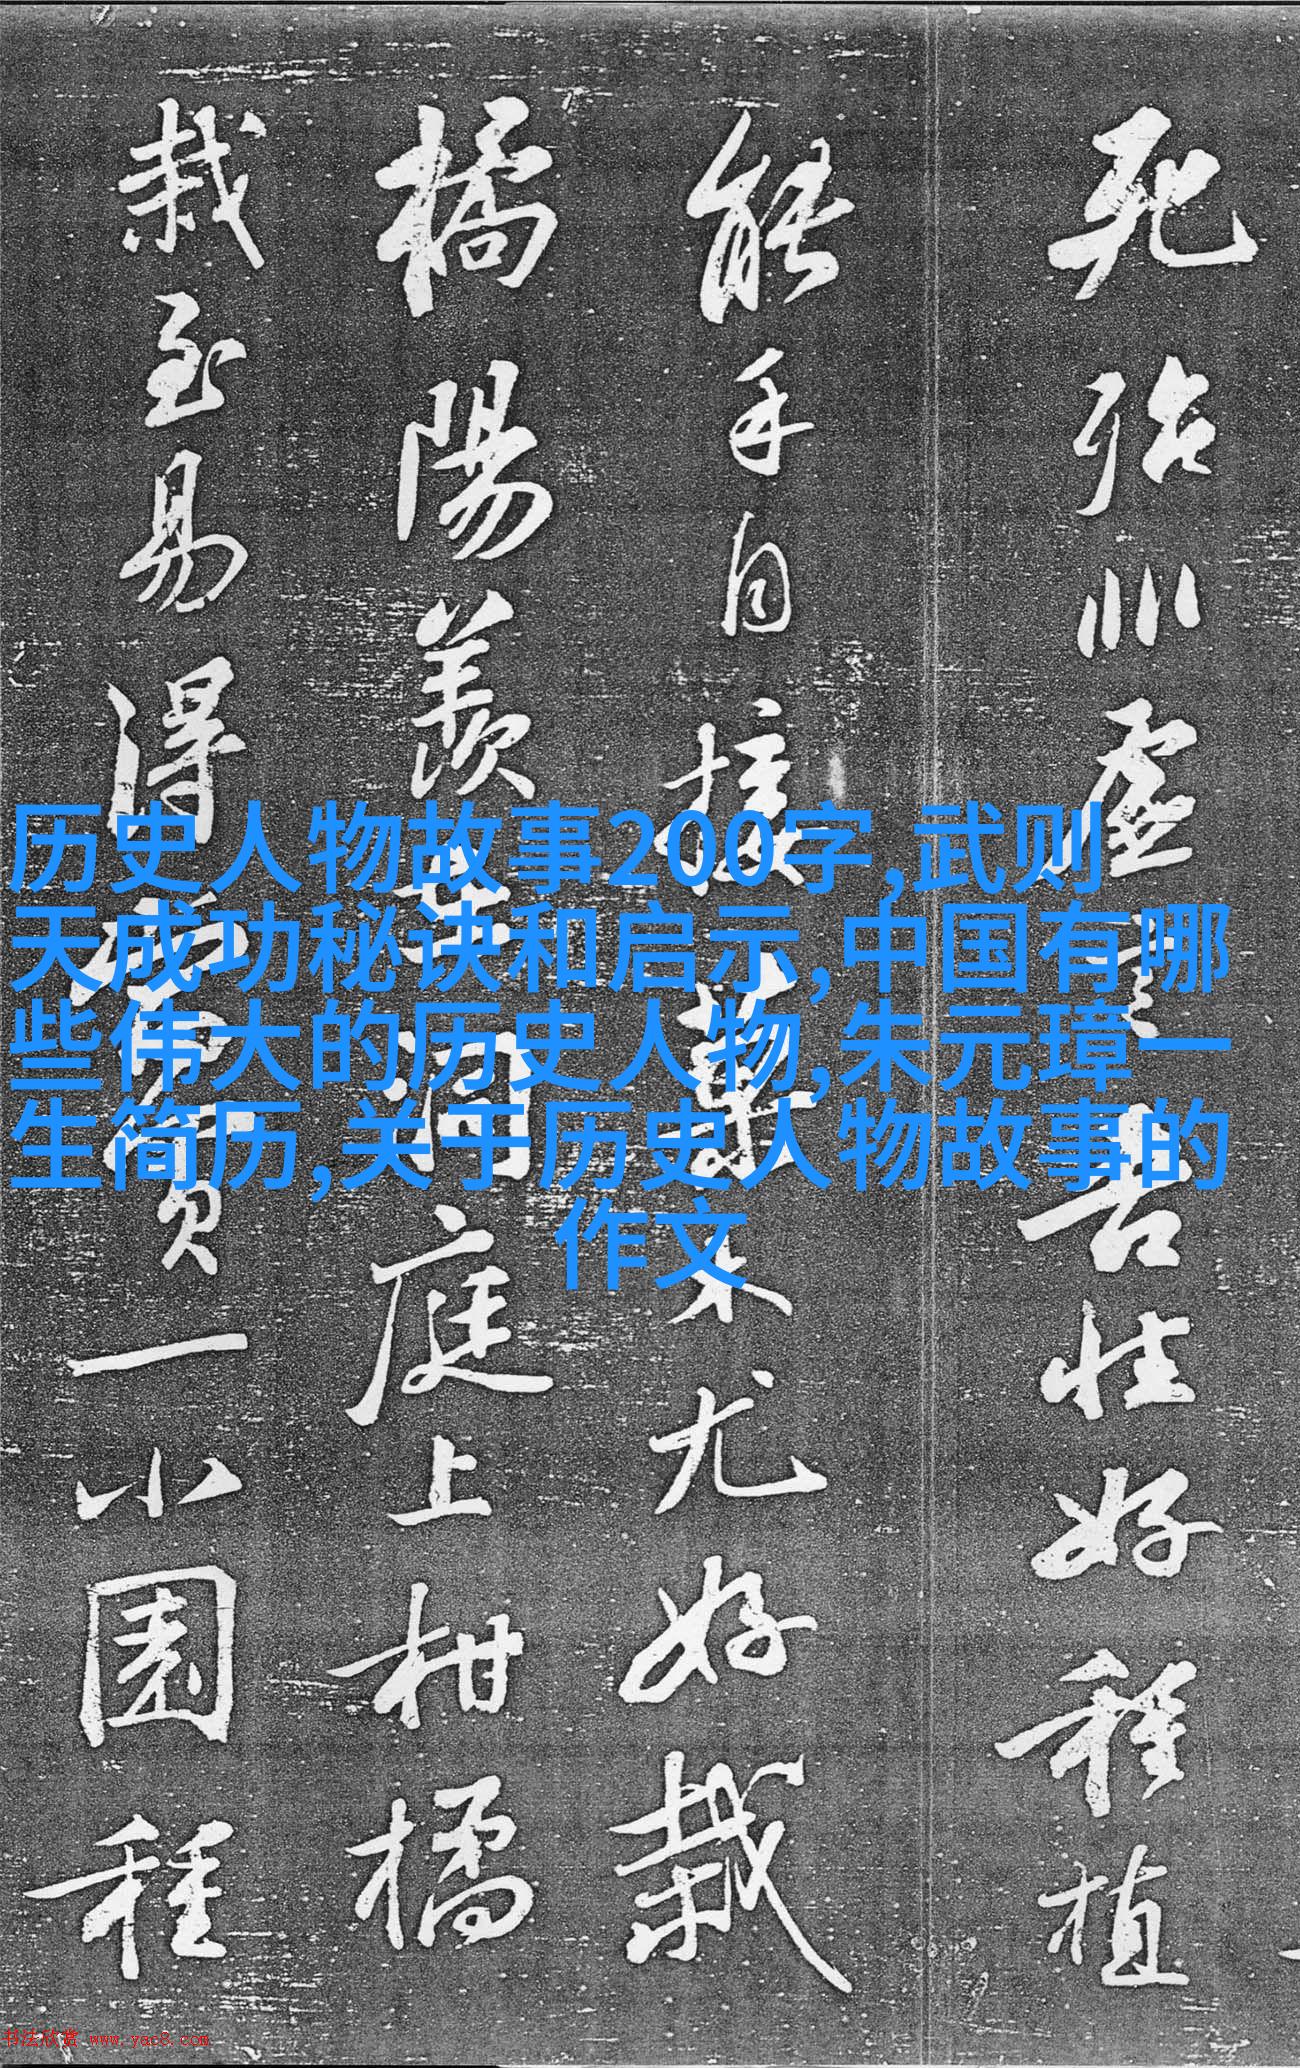 死殆非虚言吾性好種植
能手自接菓木尤好栽
橘陽羨在洞庭上柑橘
栽至易得當買一小園種
历史人物故事200字,武则
天成功秘诀和启示,中国有哪
些伟大的历史人物,朱元璋一
生简历,关于历史人物故事的
作文
书法欣赏 www.yac8.com